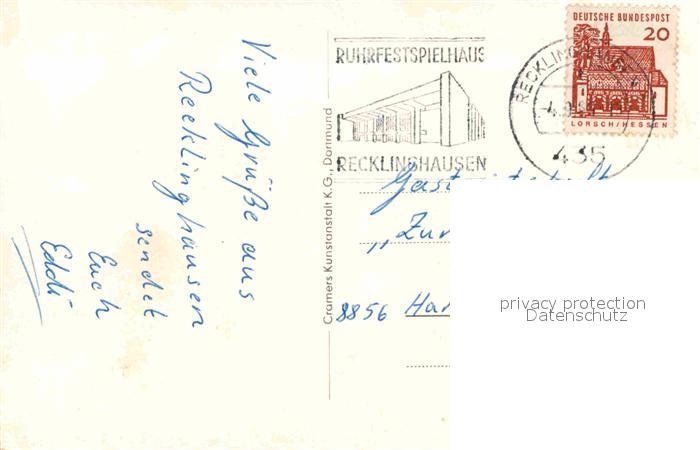 Viele Grüße aus
Recklinghausen
sendet
Euch
Eddi
Cramers Kunstanstalt K.G., Dortmund
RUHRFESTSPIELHAUS
RECKLINGHAUSEN
DEUTSCHE BUNDESPOST
20
LORSCH/HESSEN
RECKLING
435
„Zur
8856 Har
privacy protection
Datenschutz